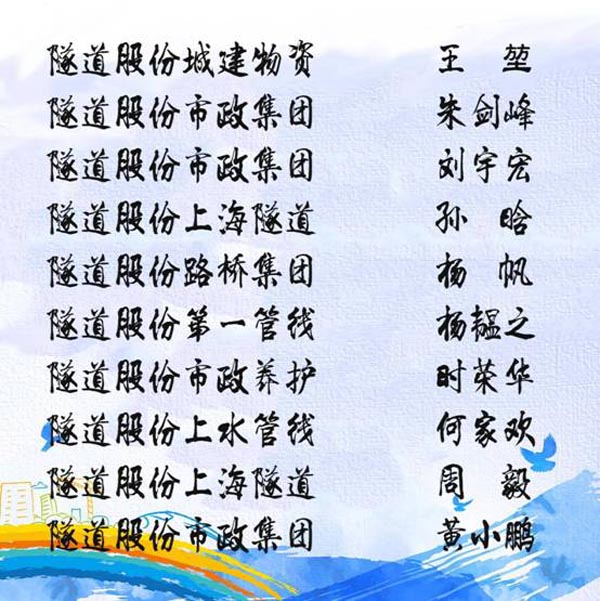 隧道股份城建物资 王堃
隧道股份市政集团 朱剑峰
隧道股份市政集团 刘宇宏
隧道股份上海隧道 孙晗
隧道股份路桥集团 杨帆
隧道股份第一管线 杨韫之
隧道股份市政养护 时荣华
隧道股份上水管线 何家欢
隧道股份上海隧道 周毅
隧道股份市政集团 黄小鹏